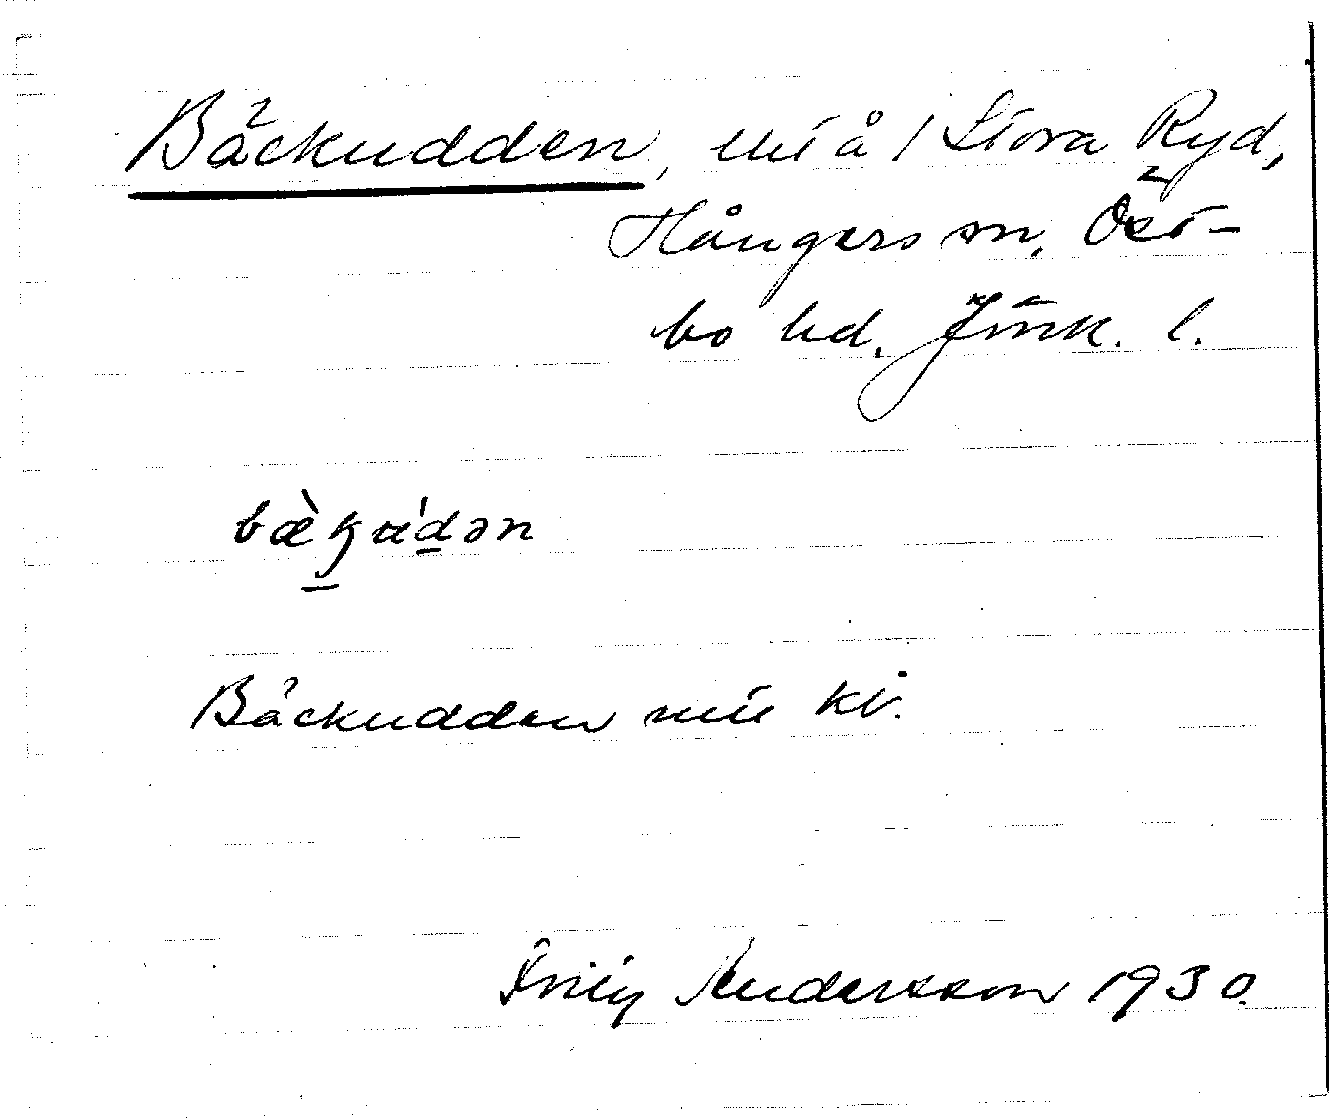 Bäckudden, utj å / Stora Ryd,
Hångers sn, Öst-
bo hd. Jönk. l.
bæ̀k̠ud̠ən
Bäckudden
Andersson 1930.